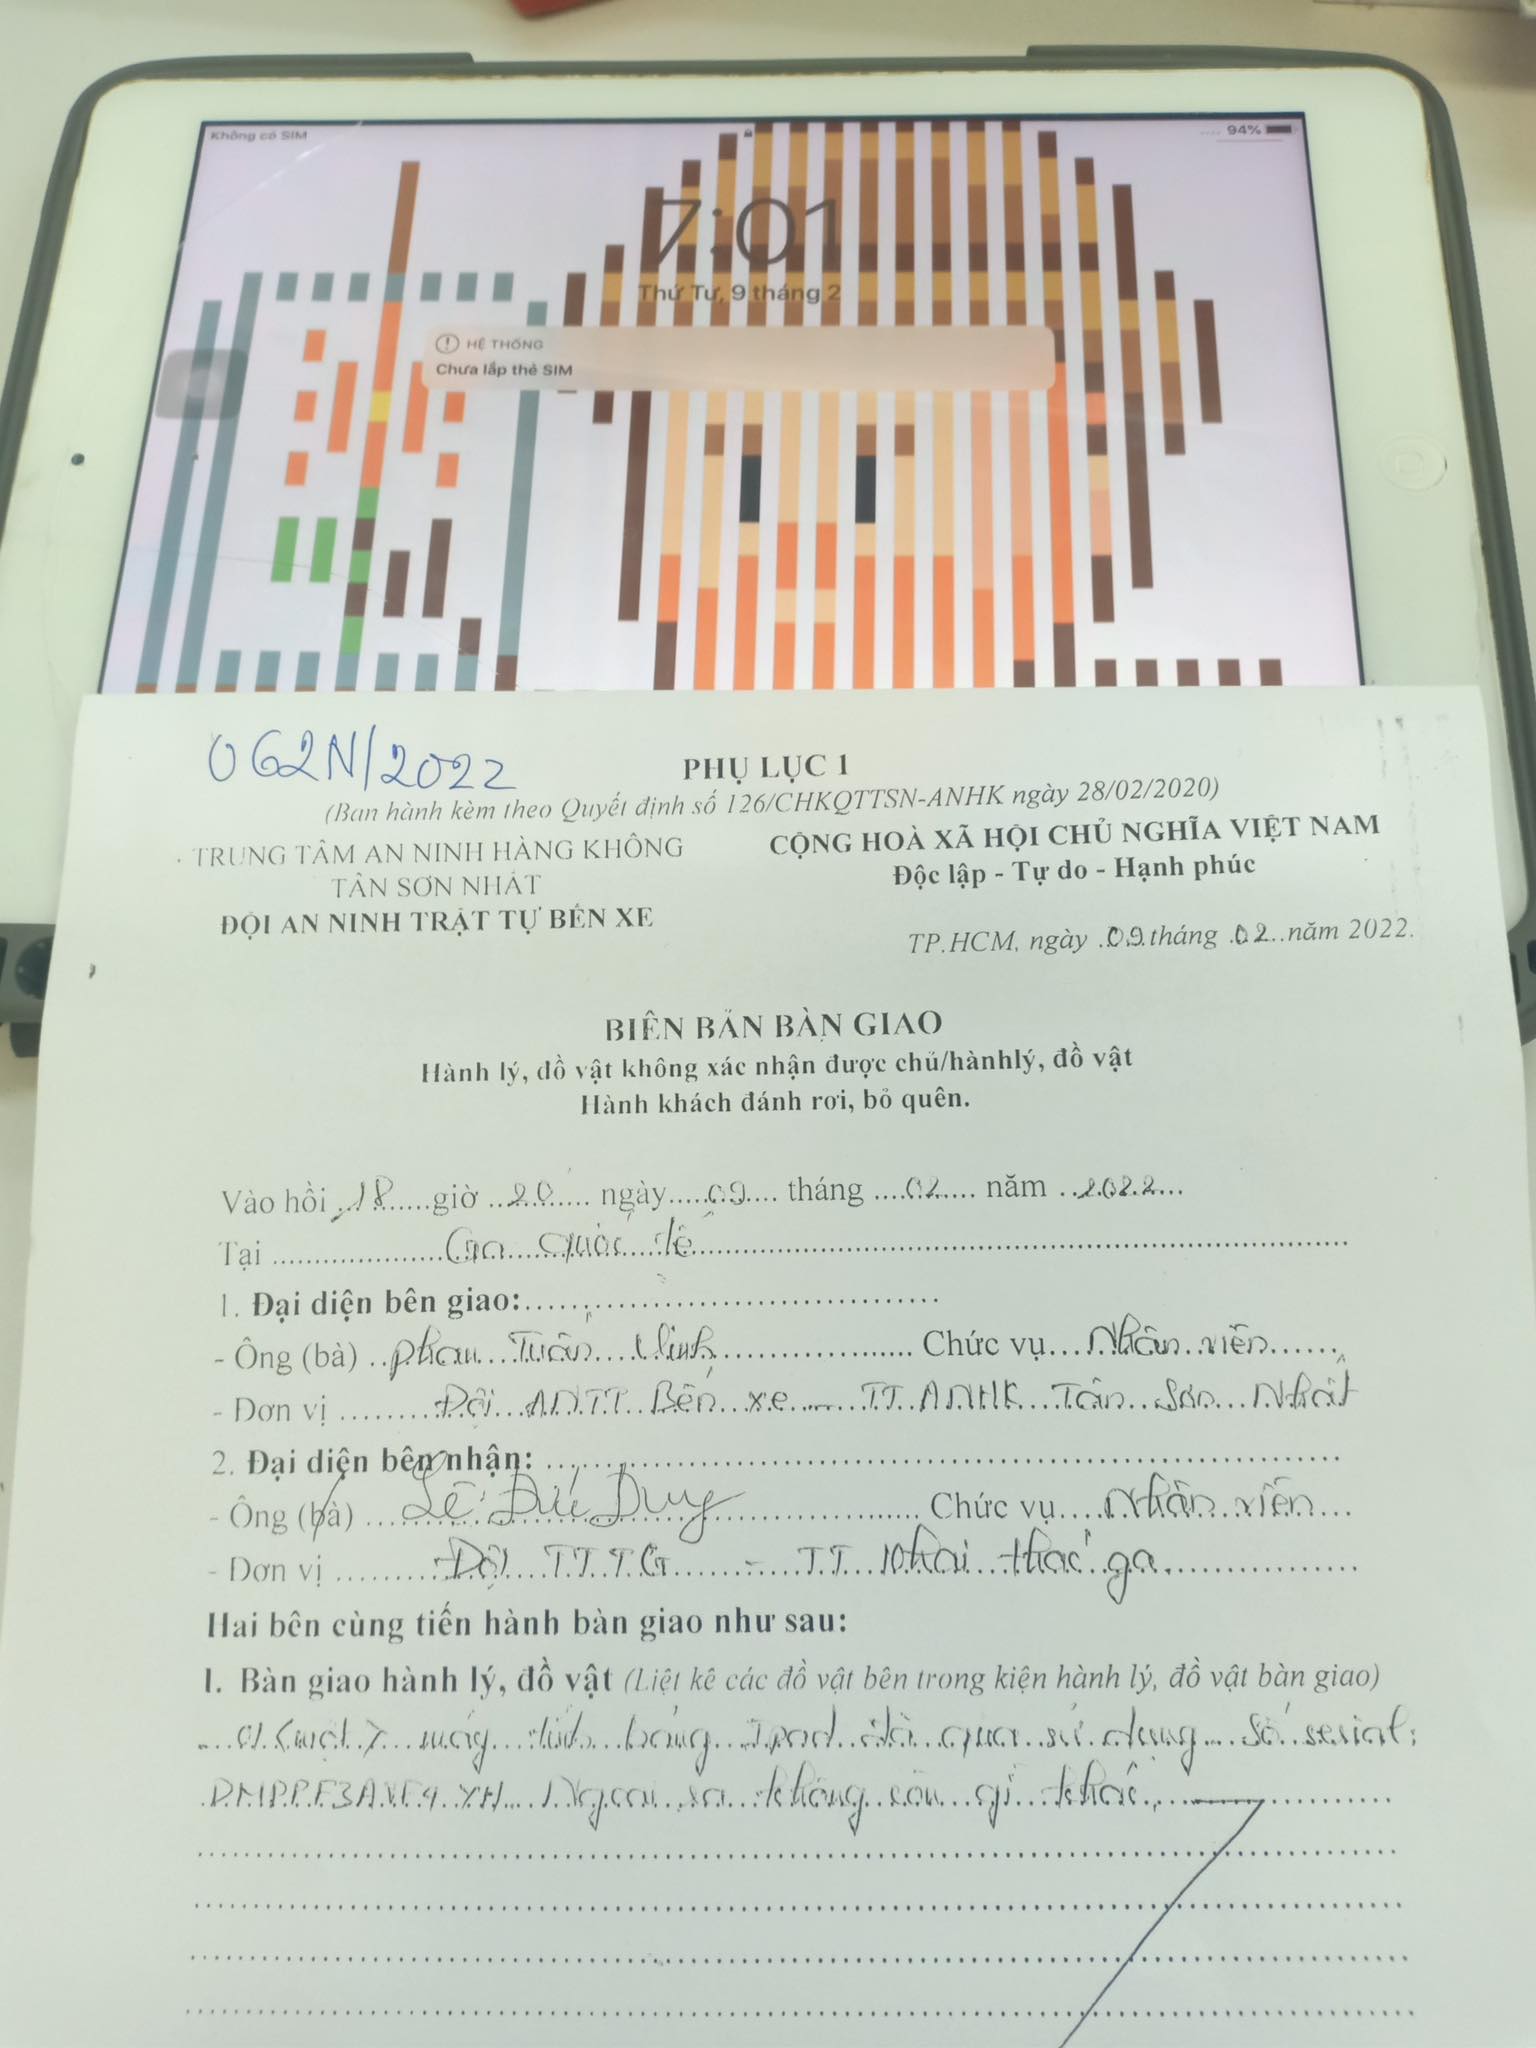 Không có SIM
94%
7:01
Thứ Tư, 9 tháng 2
HỆ THỐNG
Chưa lắp thẻ SIM
062N/2022
PHỤ LỤC 1
(Ban hành kèm theo Quyết định số 126/CHKQTTSN-ANHK ngày 28/02/2020)
TRUNG TÂM AN NINH HÀNG KHÔNG
TÂN SƠN NHẤT
ĐỘI AN NINH TRẬT TỰ BẾN XE
CỘNG HOÀ XÃ HỘI CHỦ NGHĨA VIỆT NAM
Độc lập - Tự do - Hạnh phúc
TP.HCM, ngày 09 tháng 02 năm 2022.
BIÊN BẢN BÀN GIAO
Hành lý, đồ vật không xác nhận được chủ/hànhlý, đồ vật
Hành khách đánh rơi, bỏ quên.
Vào hồi 18 giờ 20 ngày 09 tháng 02 năm 2022
Tại Ga Quốc tế
1. Đại diện bên giao:
- Ông (bà) Phan Tuấn Chức vụ Nhân viên
- Đơn vị Đội ANTT Bến xe - TT ANHK Tân Sơn Nhất
2. Đại diện bên nhận:
- Ông (bà) Lê Đức Duy Chức vụ Nhân viên
- Đơn vị Đội TTTG - TT Khai thác ga
Hai bên cùng tiến hành bàn giao như sau:
I. Bàn giao hành lý, đồ vật (Liệt kê các đồ vật bên trong kiện hành lý, đồ vật bàn giao)
01 (một) máy tính bảng Ipad đã qua sử dụng Số serial:
DMPPF3AVF4YH Ngoài ra không còn gì khác.